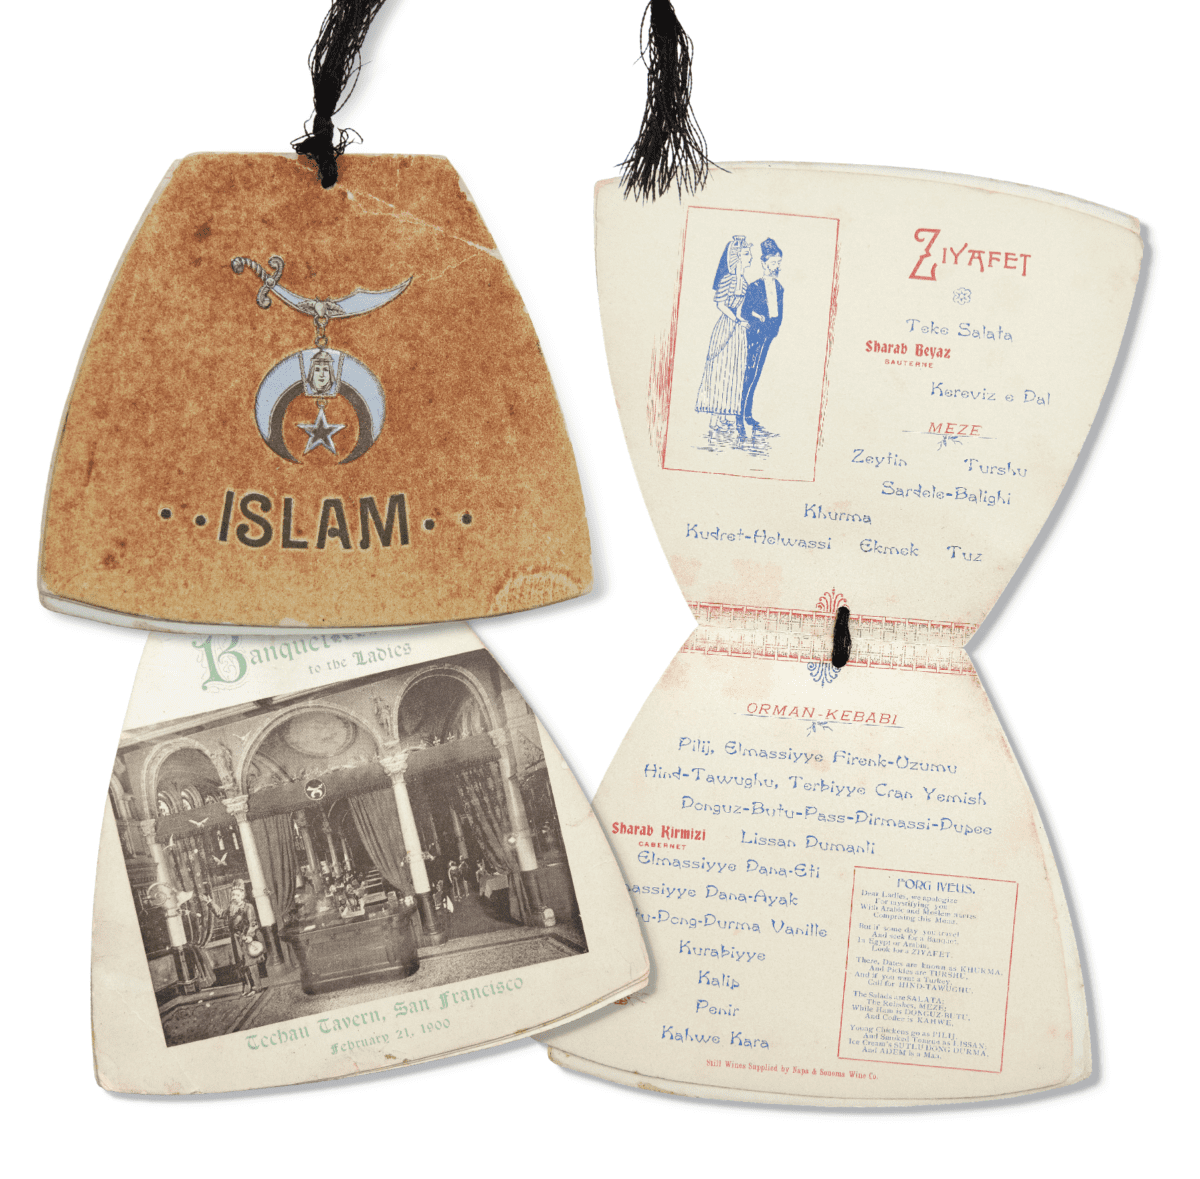 ISLAM
Banquet
to the Ladies
Techau Tavern, San Francisco
February 21, 1900
ZIYAFET
Teke Salata
Sharab Beyaz
SAUTERNE
Kereviz e Dal
MEZE
Zeytin Turshu
Sardele-Balighi
Khurma
Kudret-Helwassi Ekmek Tuz
ORMAN-KEBABI
Pilij, Elmassiyye Firenk-Uzumu
Hind-Tawughu, Terbiyye Cran Yemish
Donguz-Butu-Pass-Dirmassi-Dupee
Sharab Kirmizi
CABERNET
Lissan Dumanli
Elmassiyye Dana-Eti
assiyye Dana-Ayak
u-Dong-Durma Vanille
Kurabiyye
Kalip
Penir
Kahwe Kara
PORG IVEUS.
Dear Ladies, we apologize
For mystifying you
With Arabic and Moslem names
Comprising this Menu.
But if some day you travel
And seek for a Banquet,
In Egypt or Arabia,
Look for a ZIYAFET.
There, Dates are known as KHURMA,
And Pickles are TURSHU,
And if you want a Turkey,
Call for HIND-TAWUGHU.
The Salads are SALATA;
The Relishes, MEZE;
While Ham is DONGUZ-BUTU,
And Coffee is KAHWE.
Young Chickens go as PILIJ
And Smoked Tongue as LISSAN;
Ice Cream's SUTLU DONG DURMA,
And ADEM is a Man.
Still Wines Supplied by Napa & Sonoma Wine Co.